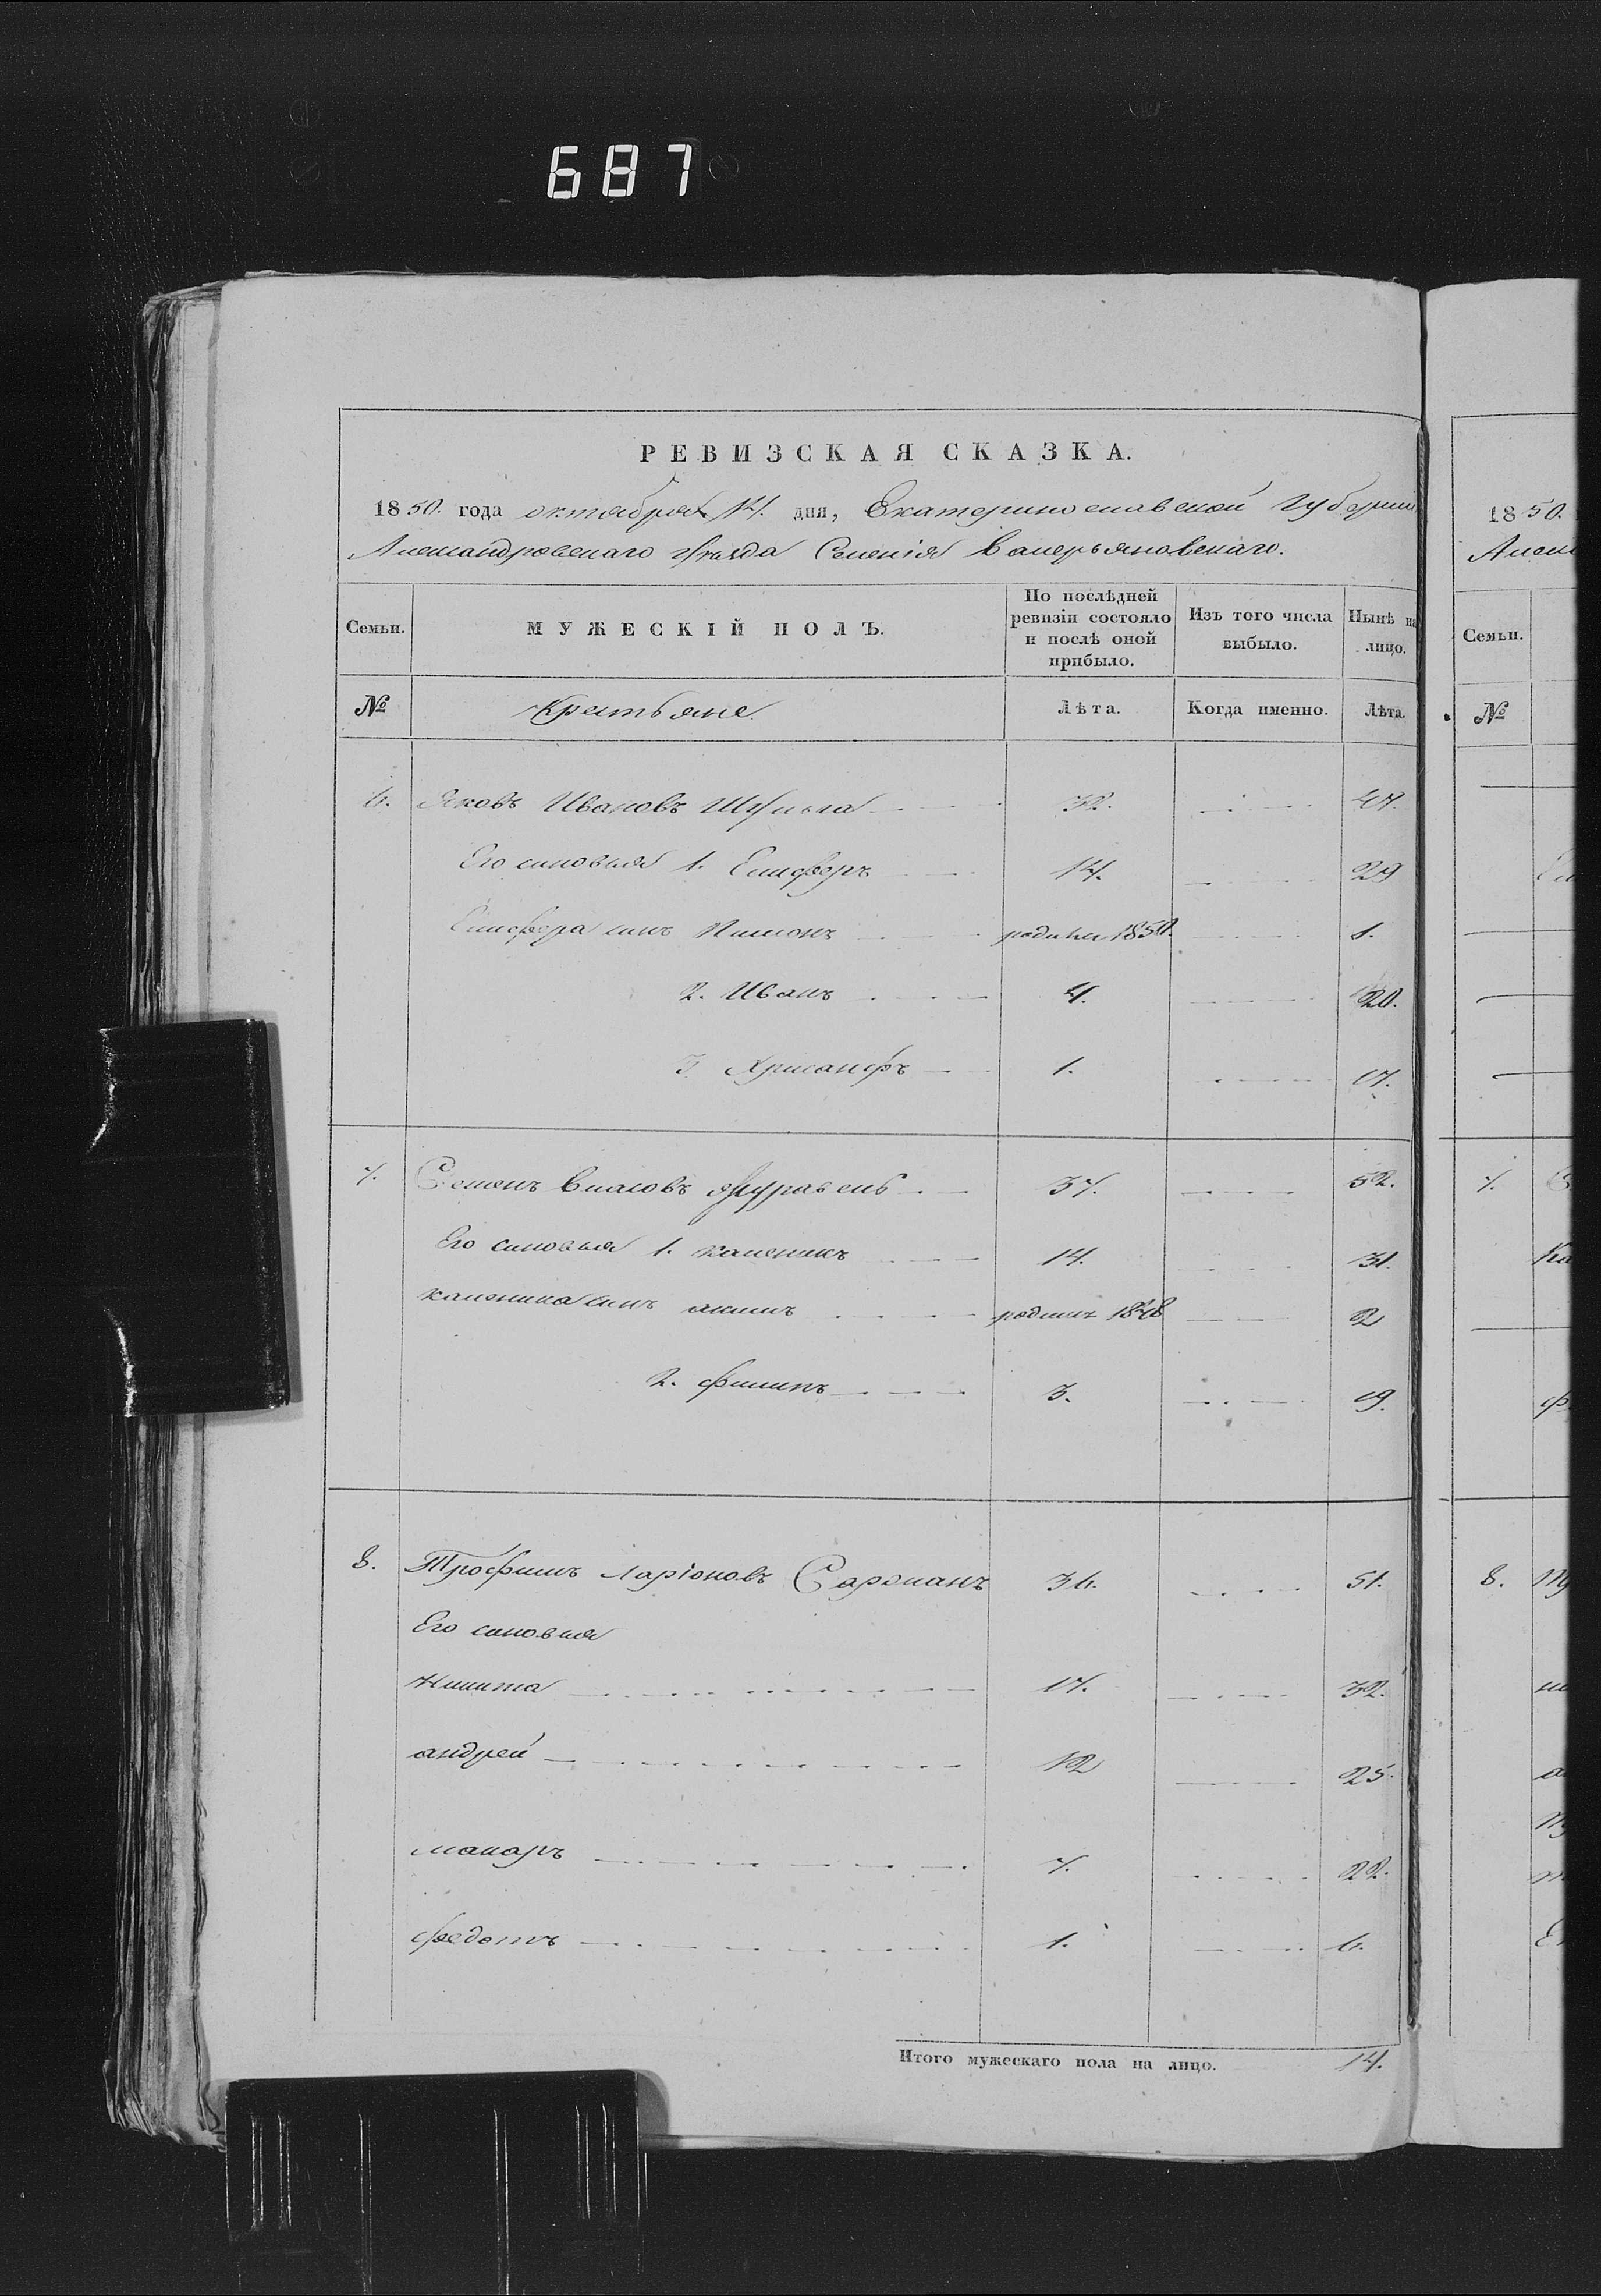 687
РЕВИЗСКАЯ СКАЗКА.
1850. года октября 14. дня, Екатеринославской Губерніи
Александровскаго уѣзда Селенія Валерьяновскаго.
Семьи. МУЖЕСКІЙ ПОЛЪ. По послѣдней ревизіи состояло и послѣ оной прибыло. Изъ того числа выбыло. Нынѣ на лицо.
№ Крестьяне. Лѣта. Когда именно. Лѣта.
6. Яковъ Ивановъ 32. 47.
Его сыновья 1. Елисферъ 14. 29
Елисфера сынъ родился 1850. 1.
2. Иванъ 4. 20.
3 Хрисанфъ 1. 17.
7. Семенъ Власовъ Журавель 37. 52.
Его сыновья 1. каленикъ 14. 31.
каленика сынъ акимъ родился 1848 2
2. филипъ 3. 19.
8. Трофимъ Ларіоновъ 36. 51.
Его сыновья
Никита 17. 32.
андрей 12 25.
макаръ 7. 22.
федотъ 1. 6.
Итого мужескаго пола на лицо. 14.
1850.
Семьи.
№
7.
8.